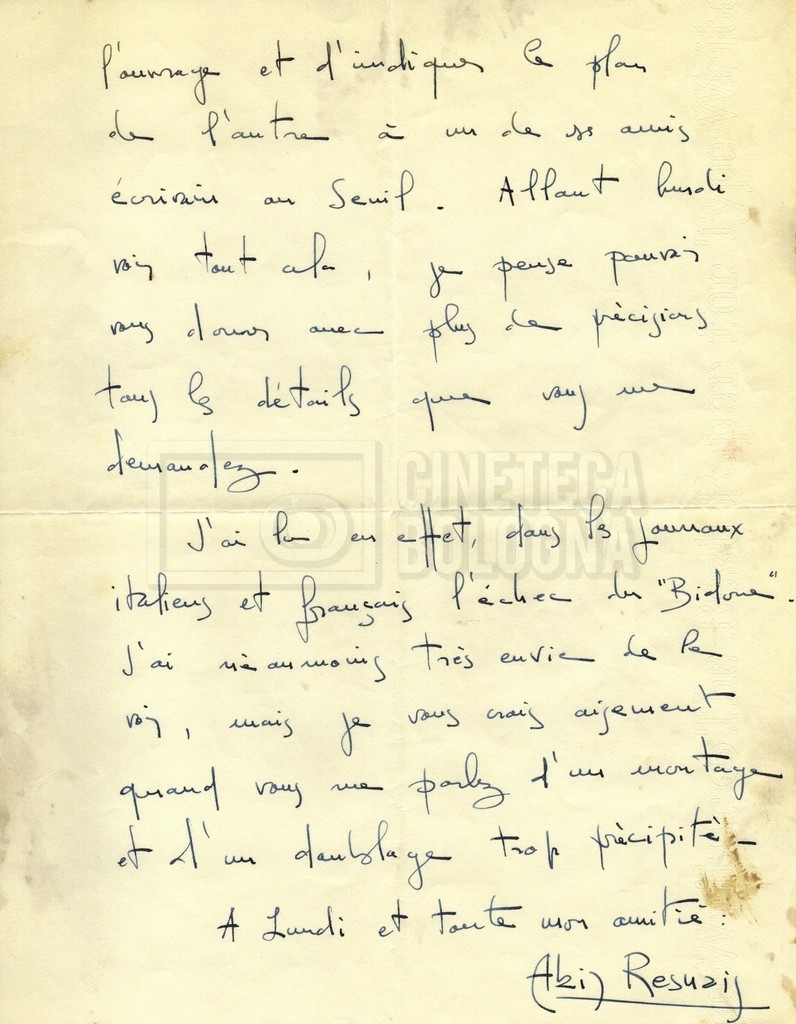 l'ouvrage et d'indiquer le plan
de l'autre à un de ses amis
écrivain au Seuil. Allant lundi
voir tout cela, je pense pouvoir
vous donner avec plus de précisions
tous les détails que vous me
demandez.
CINETECA
BOLOGNA
J'ai lu en effet, dans les journaux
italiens et français l'échec du "Bidone".
J'ai néanmoins très envie de le
voir, mais je vous crois aisément
quand vous me parlez d'un montage
et d'un doublage trop précipité_
A Lundi et toute mon amitié:
Alain Resnais